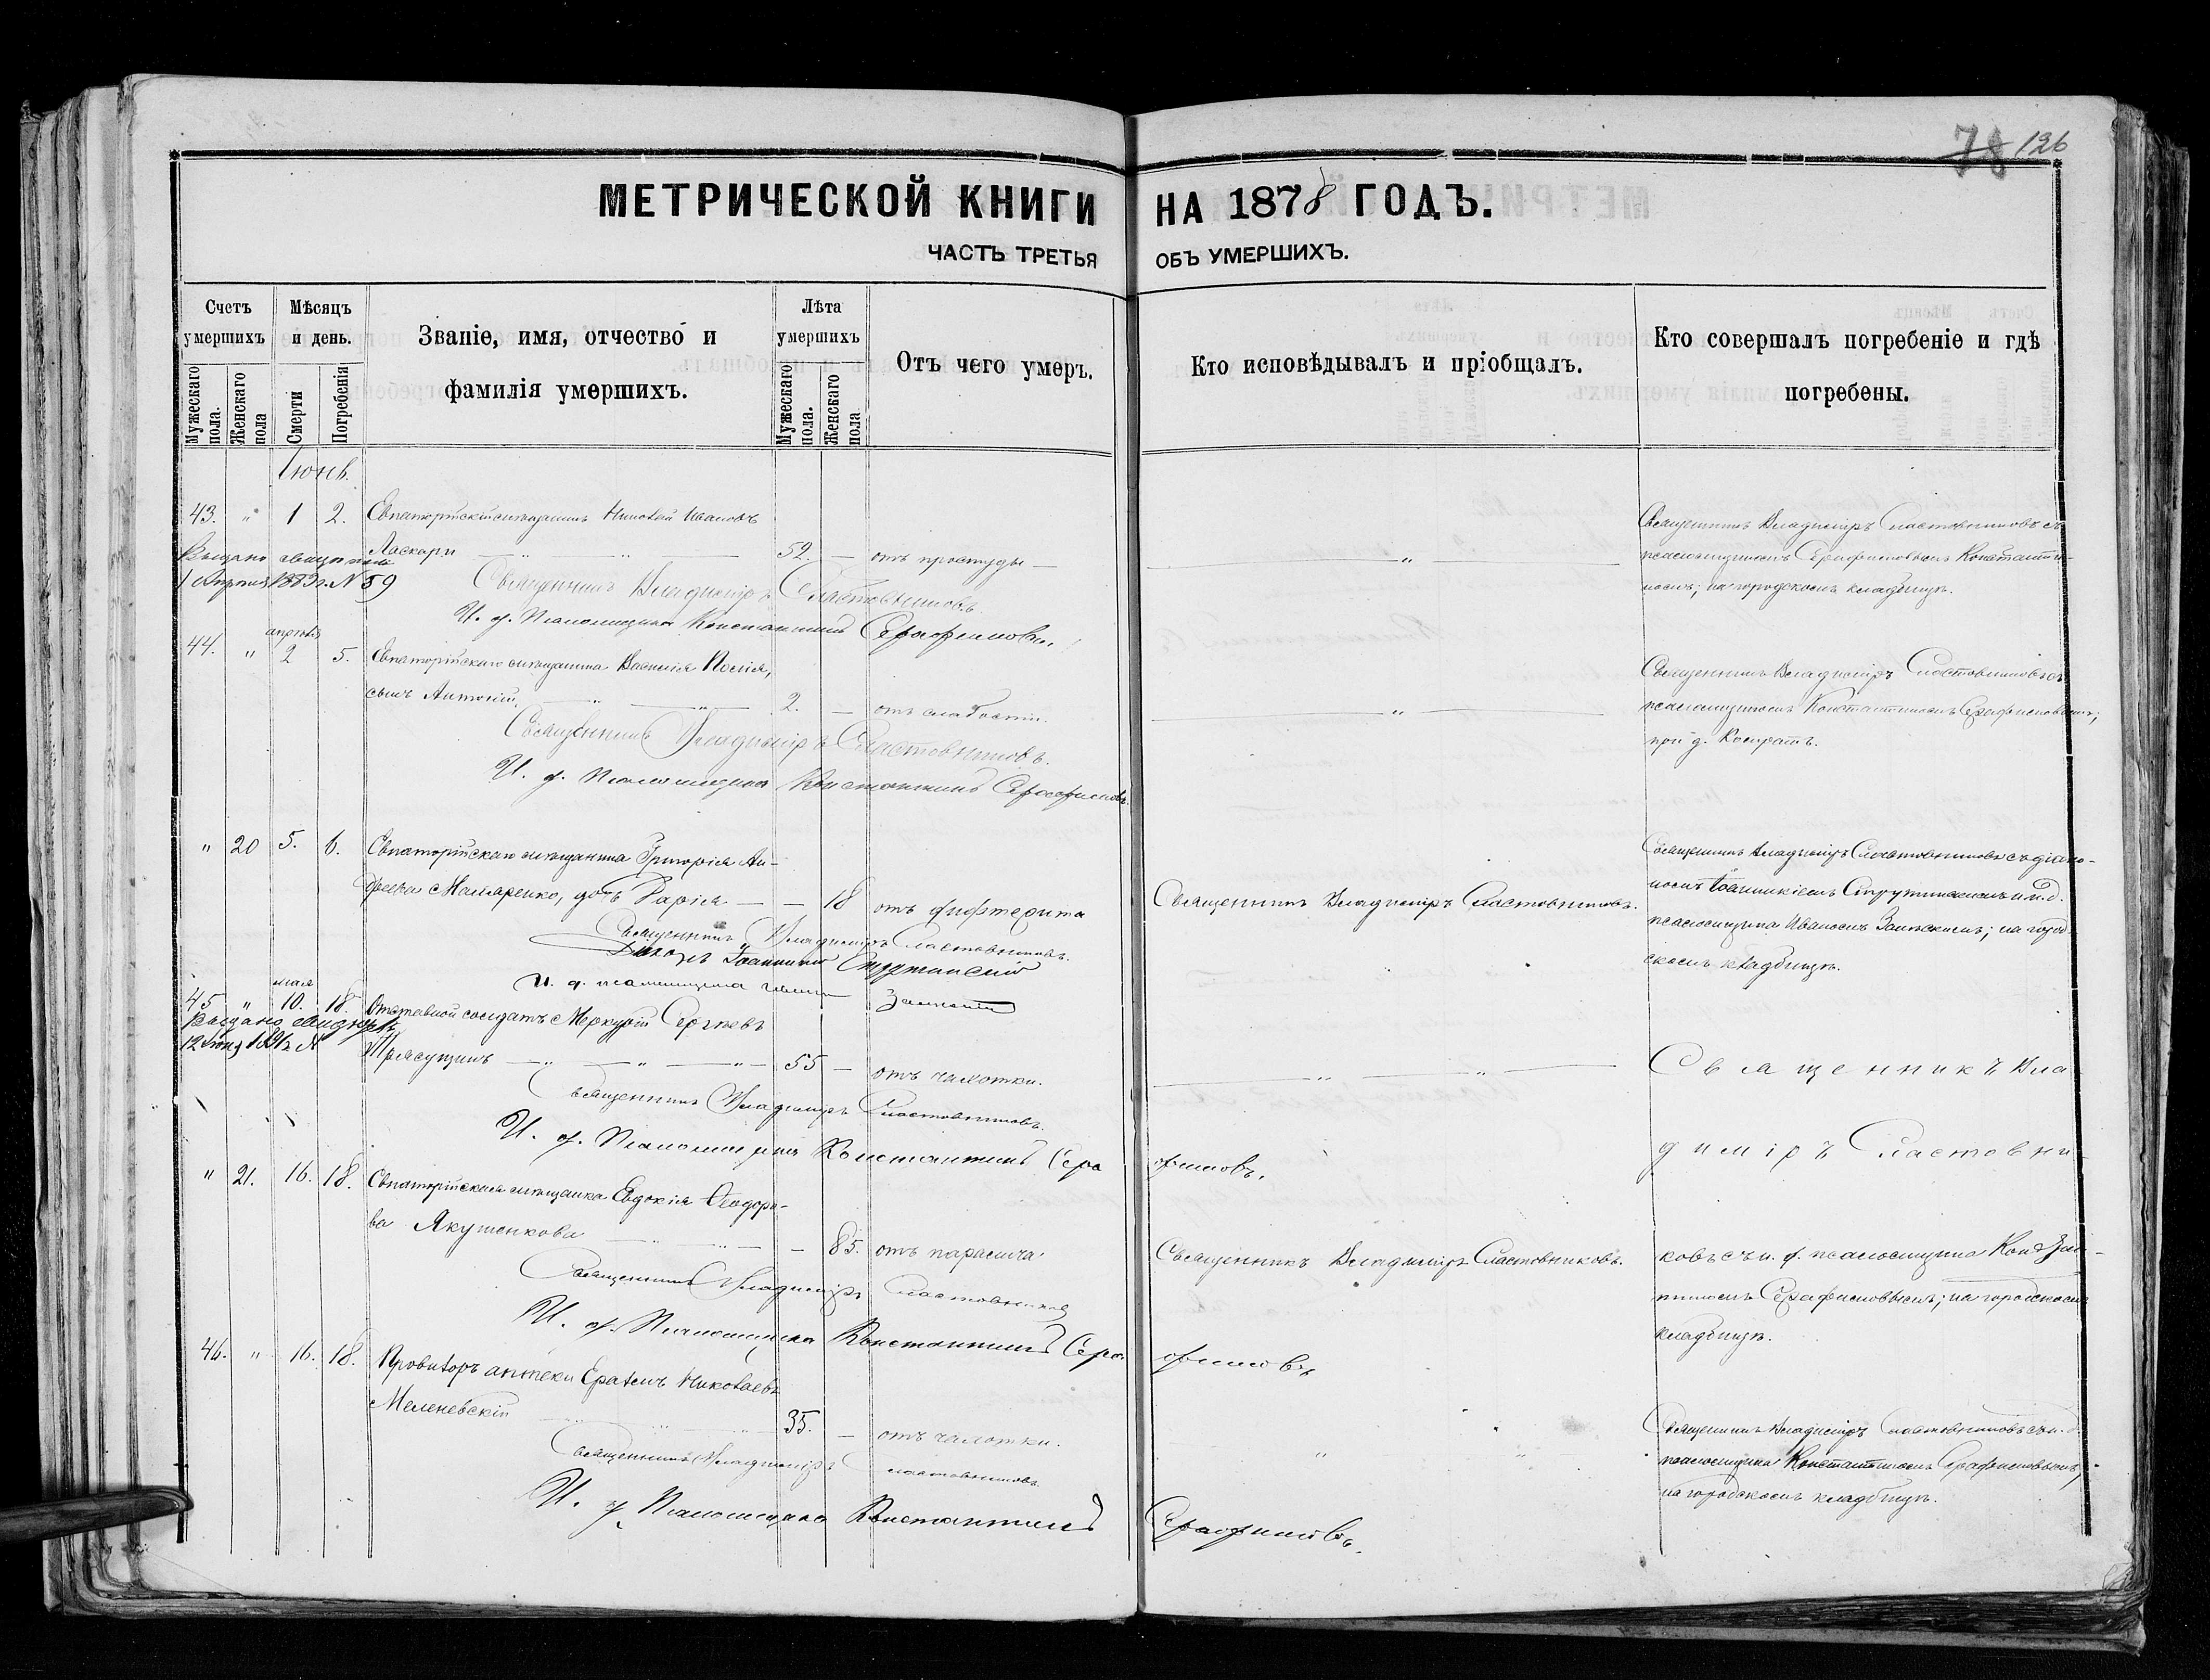 78 126
МЕТРИЧЕСКОЙ КНИГИ НА 1878 ГОДЪ.
ЧАСТЬ ТРЕТЬЯ ОБЪ УМЕРШИХЪ.
Счетъ умершихъ
Мѣсяцъ и день.
Званіе, имя, отчество и фамилія умершихъ.
Лѣта умершихъ
Отъ чего умеръ.
Кто исповѣдывалъ и пріобщалъ.
Кто совершалъ погребеніе и гдѣ погребены.
Мужескаго пола.
Женскаго пола
Смерти
Погребенія
Мужескаго пола.
Женскаго пола
43. " 1 2. Евпаторійскій мѣщанинъ Николай Ивановъ
Ласкари 52. — отъ простуды — "
Выдано
1 Апрѣля 1883 г. N 59
Священникъ Владиміръ Сластовниковъ съ
псаломщикомъ Серафимовымъ Константи-
номъ; на городскомъ кладбищѣ.
Священникъ Владиміръ Сластовниковъ.
И. д. Псаломщика Константинъ Серафимовъ.
апрѣля
44. " 2 5. Евпаторійскаго мѣщанина Василія
сынъ Антоній. 2. — отъ слабости. "
Священникъ Владиміръ Сластовниковъ съ
псаломщикомъ Константиномъ Серафимовымъ;
при д. Конратъ.
Священникъ Владиміръ Сластовниковъ.
И. д. Псаломщика Константинъ Серафимовъ.
" 20 5. 6. Евпаторійскаго мѣщанина Григорія Ан-
дреева дочь Марія — — 18 отъ дифтерита
Священникъ Владиміръ Сластовниковъ.
Священникъ Владиміръ Сластовниковъ съ діако-
номъ Іоанникіемъ и и. д.
псаломщика Иваномъ на город-
скомъ кладбищѣ.
Священникъ Владиміръ Сластовниковъ.
Діаконъ Іоанникій
И. д. псаломщика Иванъ
мая
45 " 10. 18. Отставной солдатъ Меркурій Сергѣевъ
55 — отъ чахотки. "
Выдано
Священникъ Вла
диміръ Сластовни-
ковъ съ и. д. псаломщика Конста-
нтиномъ Серафимовымъ; на городскомъ
кладбищѣ.
Священникъ Владиміръ Сластовниковъ.
И. д. Псаломщика Константинъ Серафимовъ.
" 21. 16. 18. Евпаторійская мѣщанка Евдокія Ѳеодоро-
ва Якушенкова — 85. отъ паралича
Священникъ Владиміръ Сластовниковъ.
Священникъ Владиміръ Сластовниковъ
И. д. Псаломщика Константинъ Серафимовъ
46. " 16. 18. Провизоръ аптеки Еразмъ Николаевъ
Меленевскій 35. — отъ чахотки. "
Священникъ Владиміръ Сластовниковъ съ и. д.
псаломщика Константиномъ Серафимовымъ,
на городскомъ кладбищѣ.
Священникъ Владиміръ Сластовниковъ.
И. д. Псаломщика Константинъ Серафимовъ.